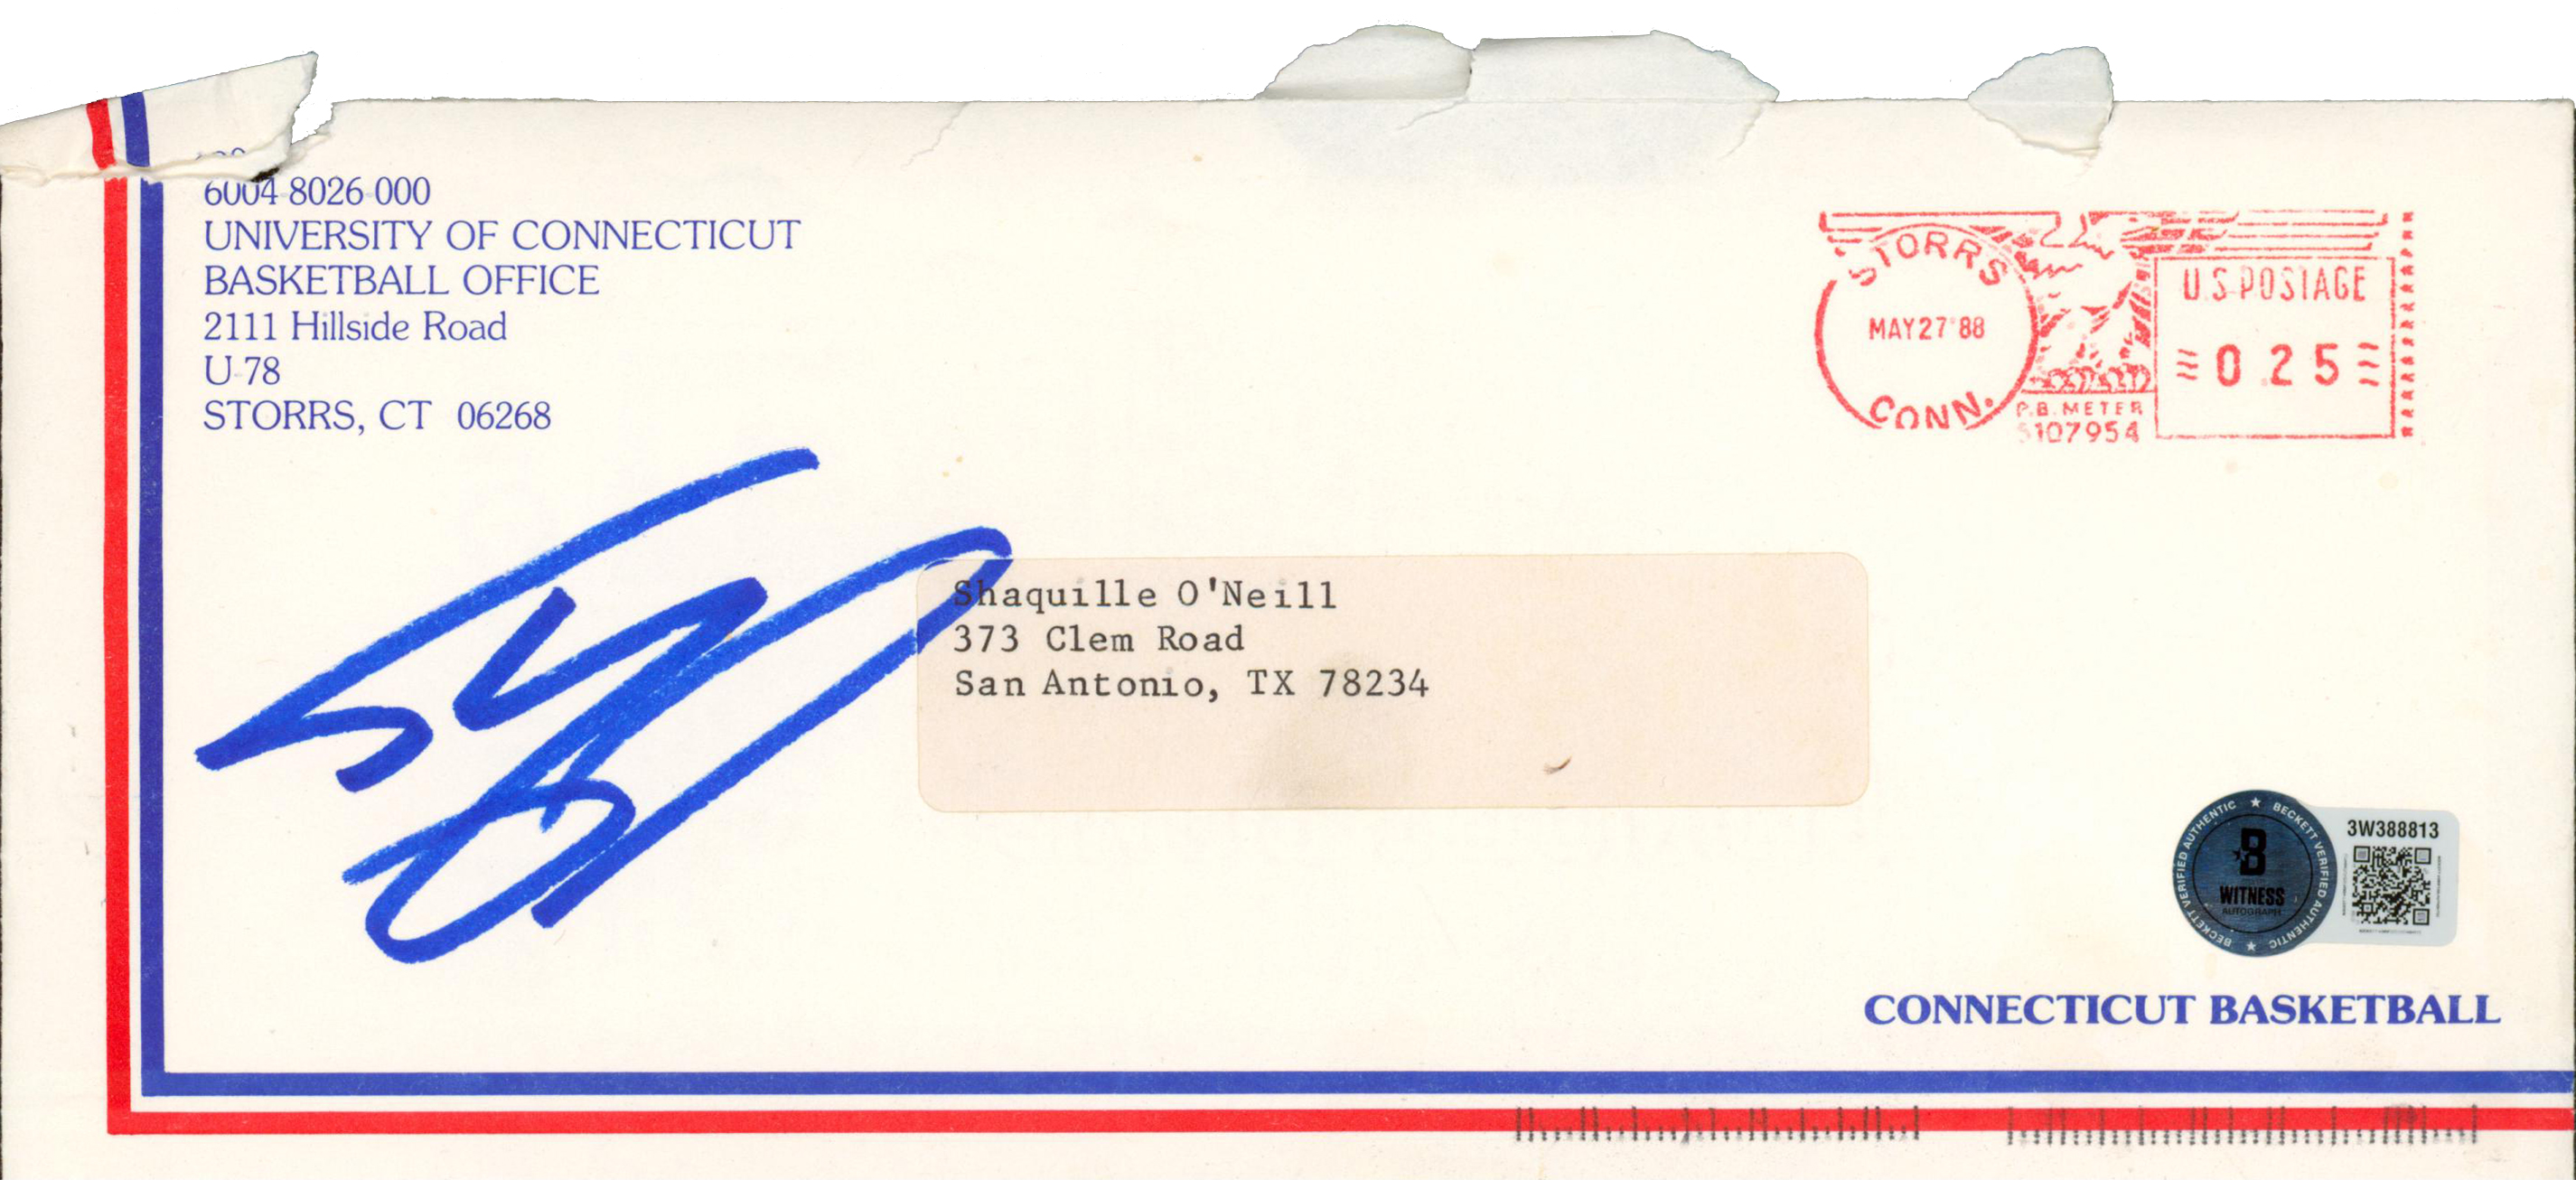 6004-8026-000
UNIVERSITY OF CONNECTICUT
BASKETBALL OFFICE
2111 Hillside Road
U-78
STORRS, CT 06268
STORRS
MAY27'88
CONN.
P.B. METER
5107954
U.S. POSTAGE
0 25
Shaquille O'Neill
373 Clem Road
San Antonio, TX 78234
BECKETT VERIFIED AUTHENTIC ★ BECKETT VERIFIED AUTHENTIC ★
B
WITNESS
AUTOGRAPH
3W388813
CONNECTICUT BASKETBALL